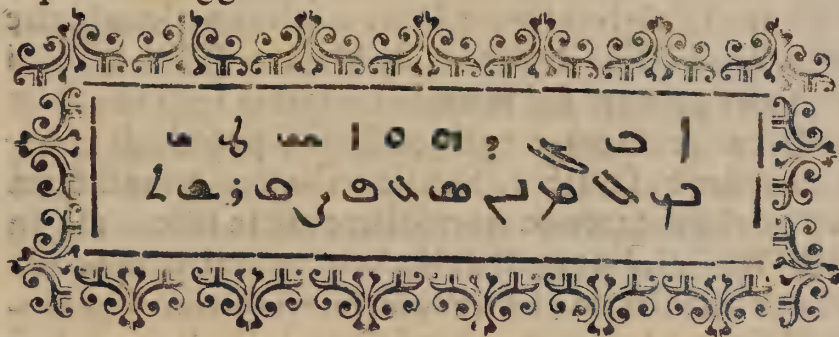 ܐ ܒ ܓ ܕ ܗ ܘ ܙ ܚ ܛ ܝ
ܟܠܡܢܣܥܦܨܩܪܫܬ